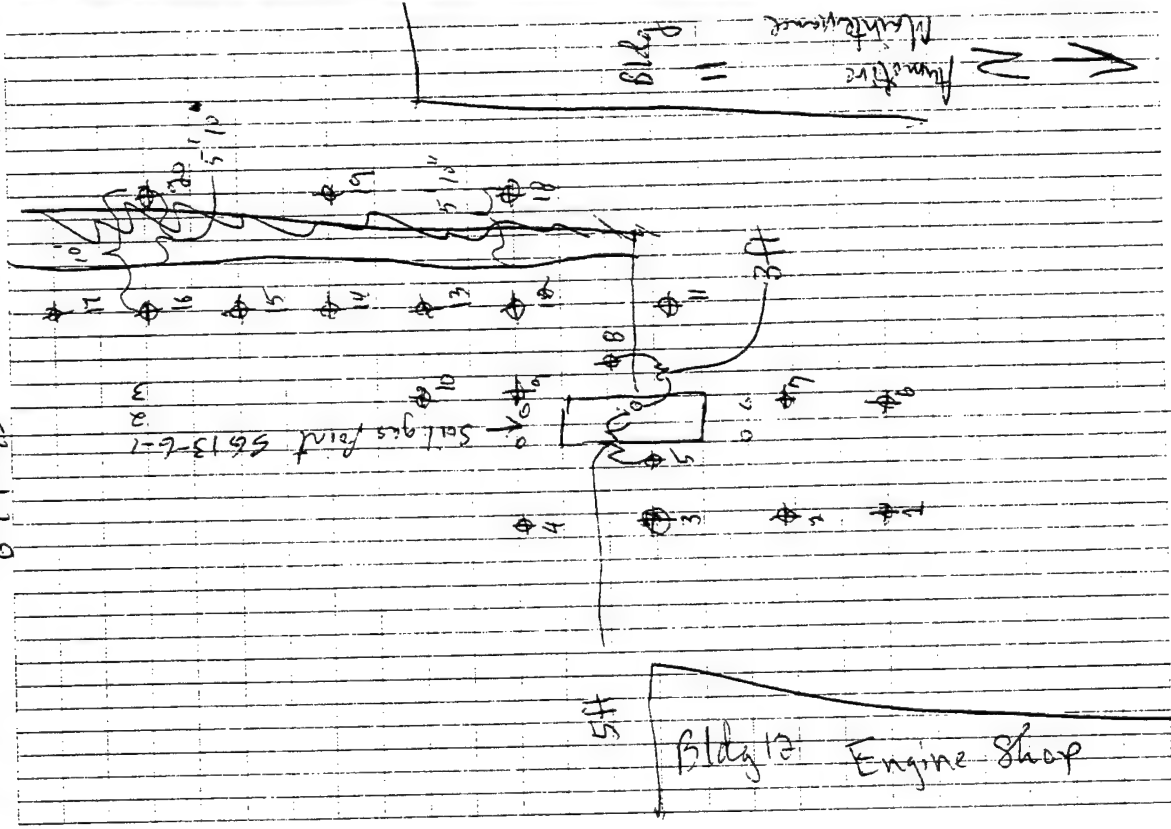 Bldg
11
Maintenance
N
20
5' 10"
19
5' 10"
18
10'
17
16
15
14
13
12
11
3 ft
8
10
9
7
6
Soil gas Point SG13-6-1
2
3
5
4
3
2
1
5 ft
Bldg 12 Engine Shop